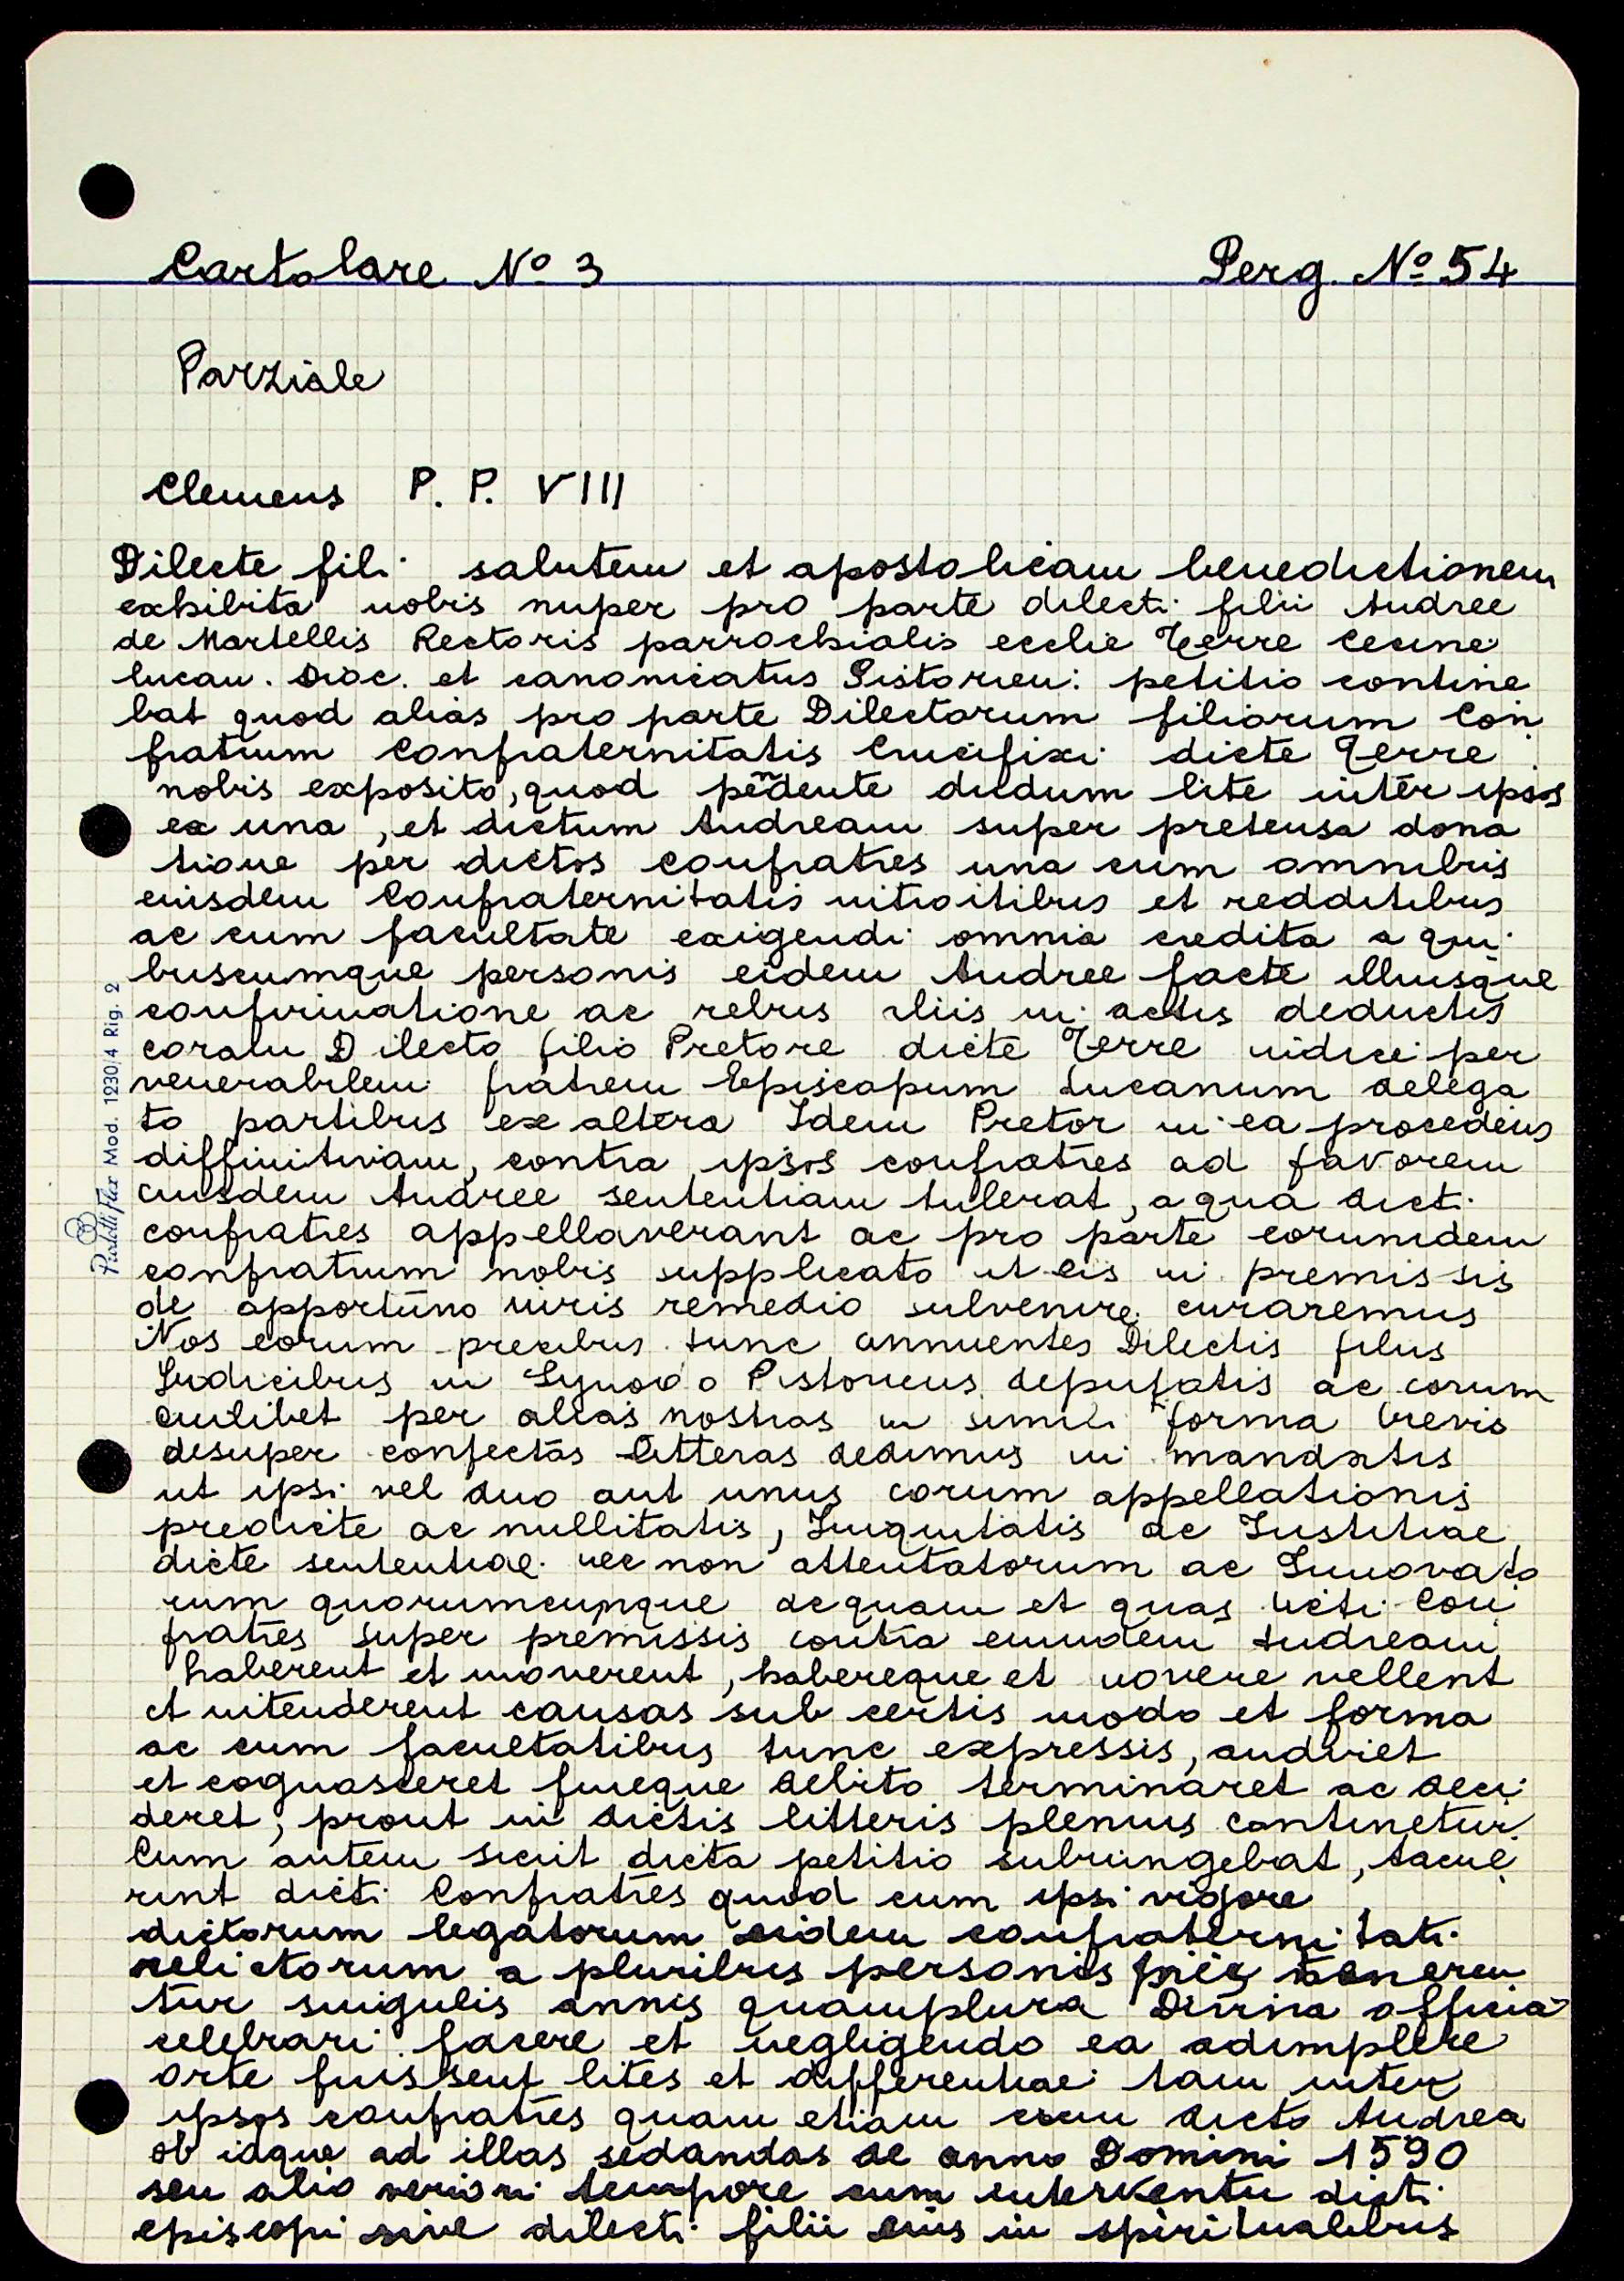 Cartolare No 3 Perg. No 54
Parziale
Clemens P. P. VIII
Dilecte fili salutem et apostolicam benedictionem
exhibita nobis nuper pro parte dilecti filii Andree
de Martellis Rectoris parrochialis ecclie Terre Cecine
lucan. Dioc. et canonicatus Pistorien: petitio contine
bat quod alias pro parte Dilectorum filiorum Con
fratium Confraternitatis Crucifixi dicte Terre
nobis exposito, quod pendente dudum lite inter ipsos
ex una, et dictum Andream super pretensa dona
tione per dictos confratres una cum omnibus
eiusdem Confraternitatis introitibus et redditibus
ac cum facultate exigendi omnia credita a qui
buscumque personis eidem Andree facte illiusque
confirmatione ac rebus aliis in actis deductis
coram Dilecto filio Pretore dicte Terre iudice per
venerabilem fratrem Episcopum Lucanum delega
to partibus ex altera Idem Pretor in ea procedens
diffinitivam, contra ipsos confratres ad favorem
eiusdem Andree sententiam tulerat, a qua dicti
confratres appellaverant ac pro parte eorumdem
confratrum nobis supplicato ut eis in premissis
de opportuno iuris remedio subvenire curaremus
Nos eorum precibus tunc annuentes Dilectis filiis
Iudicibus in Synodo Pistoriens deputatis ac eorum
cuilibet per alias nostras in simili forma brevis
desuper confectas litteras dedimus in mandatis
ut ipsi vel duo aut unus eorum appellationis
predicte ac nullitatis, Iniquitatis ac Iustitiae
dicte sententiae nec non attentatorum ac Innovato
rum quorumcunque ac quam et quas dicti Con
fratres super premissis contra eumdem Andream
haberent et moverent, habereque et movere vellent
et intenderent causas sub certis modo et forma
ac cum facultatibus tunc expressis, audiret
et cognosceret fineque debito terminaret ac deci
deret, prout in dictis litteris plenius continetur.
Cum autem sicut dicta petitio subiungebat, tacue
runt dicti Confratres quod cum ipsi vigore
dictorum legatorum eidem confraternitati
relictorum a pluribus personis piis teneren
tur singulis annis quamplura Divina officia
celebrari facere et negligendo ea adimplere
orte fuissent lites et differentiae tam inter
ipsos confratres quam etiam cum dicto Andrea
ob idque ad illas sedandas de anno Domini 1590
seu alio veriori tempore cum interventu dicti
episcopi sive dilecti filii eius in spiritualibus
Pigna Flex Mod. 1230/4 Rig. 2